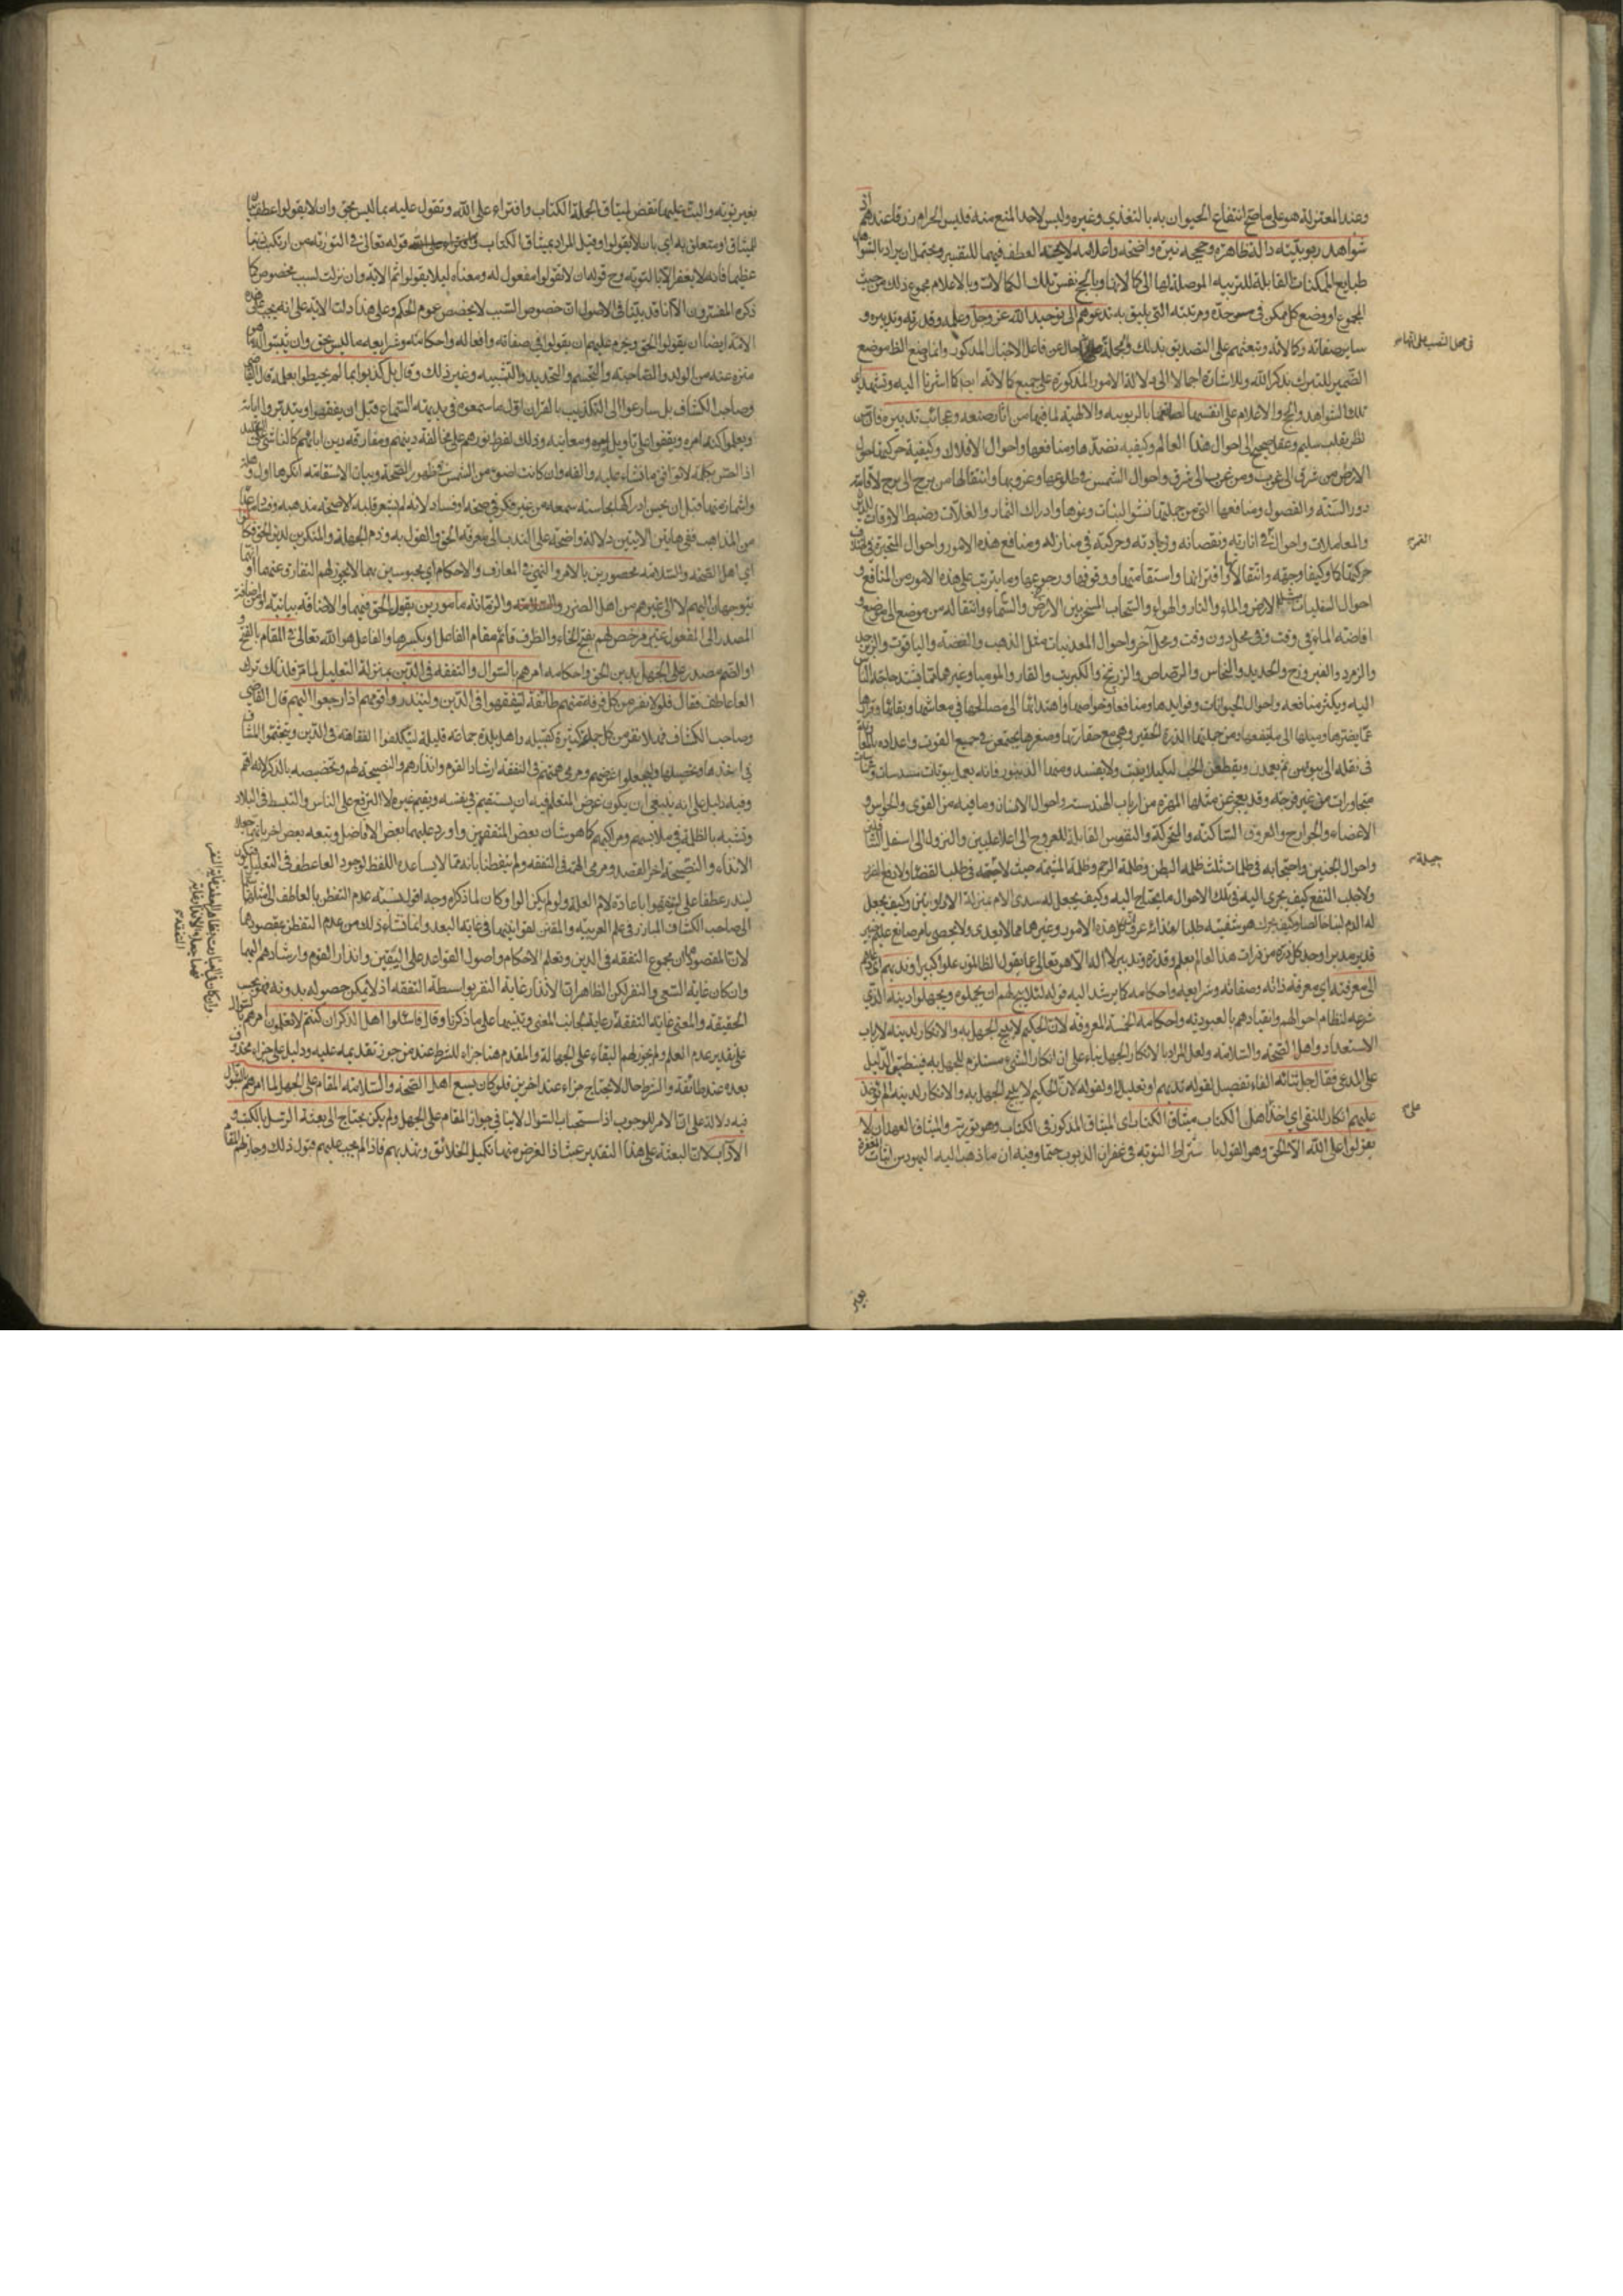 وعند المعتزلة هو على ما صح انتفاع الحيوان به بالتغذي وغيره وليس لاحد المنع منه فليس الحرام رزقا عندهم
شواهد ربوبيته دالة ظاهرة وحججه نيرة واضحة واعلامه لايحة العطف فيهما للتفسير ويحتمل ان يراد بالشواهد
طبايع الممكنات القابلة للتربية الموصلة لها الى كمالاتها وبالحجج نفس تلك الكمالات وبالاعلام مجموع ذلك من حيث
المجموع او وضع كل ممكن في حده ومرتبته التي يليق به تدعوهم الى توحيد الله عز وجل وعلمه وقدرته وتدبيره و
ساير صفاته وكمالاته وتبعثهم على التصديق بذلك والجملة حال عن فاعل الاخبار المذكور وانما وضع الظاهر موضع
في محل النصب على انها
الضمير للتبرك بذكر الله وللاشارة اجمالا الى دلالة الامور المذكورة على جميع كمالاته كما اشرنا اليه وتشهد اي
تلك الشواهد والحجج والاعلام على انفسها لصانعها بالربوبية والالهية لما فيها من آثار صنعه وعجائب تدبيره فان من
نظر بقلب سليم وعقل صحيح الى احوال هذا العالم وكيفية نضدها ومنافعها واحوال الافلاك وكيفية حركتها حول
الارض من شرق الى غرب ومن غرب الى شرق واحوال الشمس في طلوعها وغروبها وانتقالها من برج الى برج لاقامة
دور السنة والفصول ومنافعها التي من جملتها نشو النبات ونموها وادراك الثمار والغلات وضبط الاوقات
والمعاملات واحوال في انارته ونقصانه وزيادته وحركته في منازله ومنافع هذه الامور واحوال المتحيرة في
القمر
حركتها كما وكيفا وجهة وانتقالا واقترانها واستقامتها ووقوفها ورجوعها وما يترتب على هذه الامور من المنافع و
احوال السفليات مثل الارض والماء والنار والهواء والسحاب المسخر بين الارض والسماء وانتقاله من موضع الى موضع و
افاضته الماء في وقت دون وقت وفي محل دون محل آخر واحوال المعدنيات مثل الذهب والفضة والياقوت والزبرجد
والزمرد والفيروزج والحديد والنحاس والرصاص والزرنيخ والكبريت والقار والموميا وغيرها مما يشتد حاجة الناس
اليه ويكثر منافعه واحوال الحيوانات وفوايدها ومنافعها وخواصها واهتدائها الى مصالحها في معاشها وبقائها
عما يضرها وميلها الى ما ينفعها ومن جملتها الذرة الحقيرة وهي مع حقارتها وصغرها يجتمعن في جميع القوت واعداده
في نقله الى بيوتهن ثم يعمدن ويقطعن الحب لكيلا ينبت ولا يفسد ومنها الزنبور فانه يعمل بيوتات مسدسات
متجاورات من غير فرجة وقد يعجز عن مثلها المهرة من ارباب الهندسة واحوال الانسان وما فيه من القوى والحواس و
الاعضاء والجوارح والعروق الساكنة والمتحركة والنفوس القابلة للعروج الى اعلا عليين والنزول الى اسفل السافلين
واحوال الجنين واحتجابه في ظلمات ثلث ظلمة البطن وظلمة الرحم وظلمة المشيمة حيث لا حيلة في طلب الغذاء ولا دفع الضرر
حيلة
ولا جلب النفع كيف يجري اليه في تلك الاحوال ما يحتاج اليه وكيف يجعل له ثدي الام بمنزلة الاداوتين وكيف يجعل
له الدم لبنا خالصا وكيف يحرك هو شفتيه طلبا لغذائه عرف ان كل هذه الامور وغيرها مما لا يعد ولا يحصى بامر صانع عليم
قدير مدبر اوجد كل ذرة من ذرات هذا العالم بعلم وقدرة وتدبير لا اله الا هو تعالى عما يقول الظالمون علوا كبيرا وندبهم
الى معرفته اي معرفة ذاته وصفاته وشرايعه واحكامه كما يرشد اليه قوله لئلا يبيح لهم ان يجهلوه ويجهلوا دينه الذي
شرعه لنظام احوالهم وانقيادهم بالعبودية واحكامه الخمسة المعروفة لان الحكيم لا يبيح الجهل به والانكار لدينه لارباب
الاستعداد واهل الصحة والسلامة ولعل المراد بالانكار الجهل بناء على ان انكار الشيء مستلزم للجهل به فينطبق الدليل
على المدعى فقال جل ثنائه الفاء تفصيل لقوله ندبهم او تعليل له ولقوله لان الحكيم لا يبيح الجهل به والانكار لدينه الم يؤخذ
عليهم انكار للنفي اي اخذ على اهل الكتاب ميثاق الكتاب اي الميثاق المذكور في الكتاب وهو التورية والميثاق العهد ان لا
يقولوا على الله الا الحق وهو القول باشتراط التوبة في غفران الذنوب حتما وفيه ان ما ذهب اليه اليهود من اثبات المغفرة
بغير
بغير توبة والبت عليها نقض لميثاق الكتاب وافتراء على الله وتقول عليه بما ليس بحق وان لا يقولوا عطف بيان
للميثاق او متعلق به اي بان لا يقولوا وقيل المراد بميثاق الكتاب قوله تعالى في التورية من ارتكب ذنبا
عظيما فانه لا يغفر له الا بالتوبة وح قوله ان لا يقولوا مفعول له ومعناه لئلا يقولوا ثم الاية وان نزلت لسبب مخصوص كما
ذكره المفسرون الا انا قد بينا في الاصول ان خصوص السبب لا يخصص عموم الحكم وعلى هذا دلت الاية على انه يجب على هذه
الامة ايضا ان يقولوا الحق ويحرم عليهم ان يقولوا في صفاته وافعاله واحكامه وشرايعه ما ليس بحق وان ينسبوا اليه ما هو
منزه عنه من الولد والصاحبة والتجسم والتحديد والتشبيه وغير ذلك وقال بل كذبوا بما لم يحيطوا بعلمه قال القاضي
وصاحب الكشاف بل سارعوا الى التكذيب بالقران اول ما سمعوه في بديهة السماع قبل ان يفقهوا ويتدبروا اياته
ويعلموا كنه امره ويقفوا على تاويله ومعانيه وذلك لفرط نفورهم على مخالفة دينهم ومفارقة دين ابائهم كالناشي على التقليد
اذا احس بكلمة لا توافق ما نشاء عليه والفه وان كانت اضوء من الشمس في ظهور الصحة وبيان الاستقامة انكرها اول وهلة
واشمأز منها قبل ان يحس ادراكها بحاسة سمعه من غير فكر في صحة او فساد لانه لم يشعر قلبه الا صحة مذهبه وفساد ما عداه
من المذاهب ففي هاتين الايتين دلالة واضحة على الندب الى معرفة الحق والقول به وذم الجهلة والمنكرين لدين الحق فكانوا
اي اهل الصحة والسلامة محصورين بالامر والنهي في المعارف والاحكام اي محبوسين بهما لا يجوز لهم التفارق عنهما
يتوجهان اليهم لا الى غيرهم من اهل الضرر والزمانة مأمورين بقول الحق فيهما والاضافة بيانية
المصدر الى المفعول غير مرخص لهم بفتح الخاء والظرف قائم مقام الفاعل او بكسرها والفاعل هو الله تعالى في المقام بالفتح
او الضم مصدر على الجهل بدين الحق واحكامه امرهم بالسؤال والتفقه في الدين بمنزلة التعليل لما مر فلذلك ترك
العاطف فقال فلولا نفر من كل فرقة منهم طائفة ليتفقهوا في الدين ولينذروا قومهم اذا رجعوا اليهم قال القاضي
وصاحب الكشاف فهلا نفر من كل جماعة كثيرة كقبيلة واهل بلدة جماعة قليلة ليتكلفوا الفقاهة في الدين ويتجشموا المشاق
في اخذها وتحصيلها وليجعلوا غرضهم ومرمى همتهم في التفقه ارشاد القوم وانذارهم والنصيحة لهم وتخصيصه بالذكر لانه اهم
وفيه دليل على انه ينبغي ان يكون غرض المتعلم فيه ان يستقيم في نفسه ويقيم غيره لا الترفع على الناس والتبسط في البلاد
وتشبه بالظلمة في ملابسهم ومراكبهم كما هو شأن بعض المتفقهين واورد عليهما بعض الافاضل وتبعه بعض اخر بانهما جعلا
الانذار والنصيحة اخر القصد ومرمى الهمة في التفقه ولم يتفطنا بانه مما لا يساعده اللفظ لوجود العاطف في التعليل
لينذر عطفا على ليتفقهوا باعادة لام العلة ولو لم يكن الواو كان لما ذكراه وجه اقول نسبة عدم التفطن بالعاطف الى مثلهما
الى صاحب الكشاف المبارز في علم العربية والمقنن لقوانينها في غاية البعد وانما نشاء ذلك من عدم التفطن بمقصودهما
لان المقصود ان مجموع التفقه في الدين وتعلم الاحكام واصول القواعد على اليقين وانذار القوم وارشادهم اليها
وان كان غاية السعي والنفر لكن الظاهر ان الانذار غاية النفر بواسطة التفقه اذ لا يمكن حصوله بدونه فهو بحسب
الحقيقة والمعنى غاية التفقه رعاية لجانب المعنى وتنبيها على ما ذكرنا وقال فاسئلوا اهل الذكر ان كنتم لا تعلمون امرهم بالسؤال
على تقدير عدم العلم ولم يجوز لهم البقاء على الجهالة والمقدم هنا جزاء للشرط عند من جوز تقديمه عليه ودليل على جزاء محذوف
بعده عند طائفة والشرط حال لا يحتاج جزاء عند اخرين فلو كان يسع اهل الصحة والسلامة المقام على الجهل لما امرهم بالسؤال
فيه دلالة على ان الامر للوجوب اذ استحباب السؤال لا ينافي جواز المقام على الجهل ولم يكن يحتاج الى بعثة الرسل بالكتب و
الاداب لان البعثة على هذا التقدير عبث اذ الغرض منها تكميل الخلائق وتهذيبهم فاذا لم يجب عليهم قبول ذلك وجاز لهم المقام